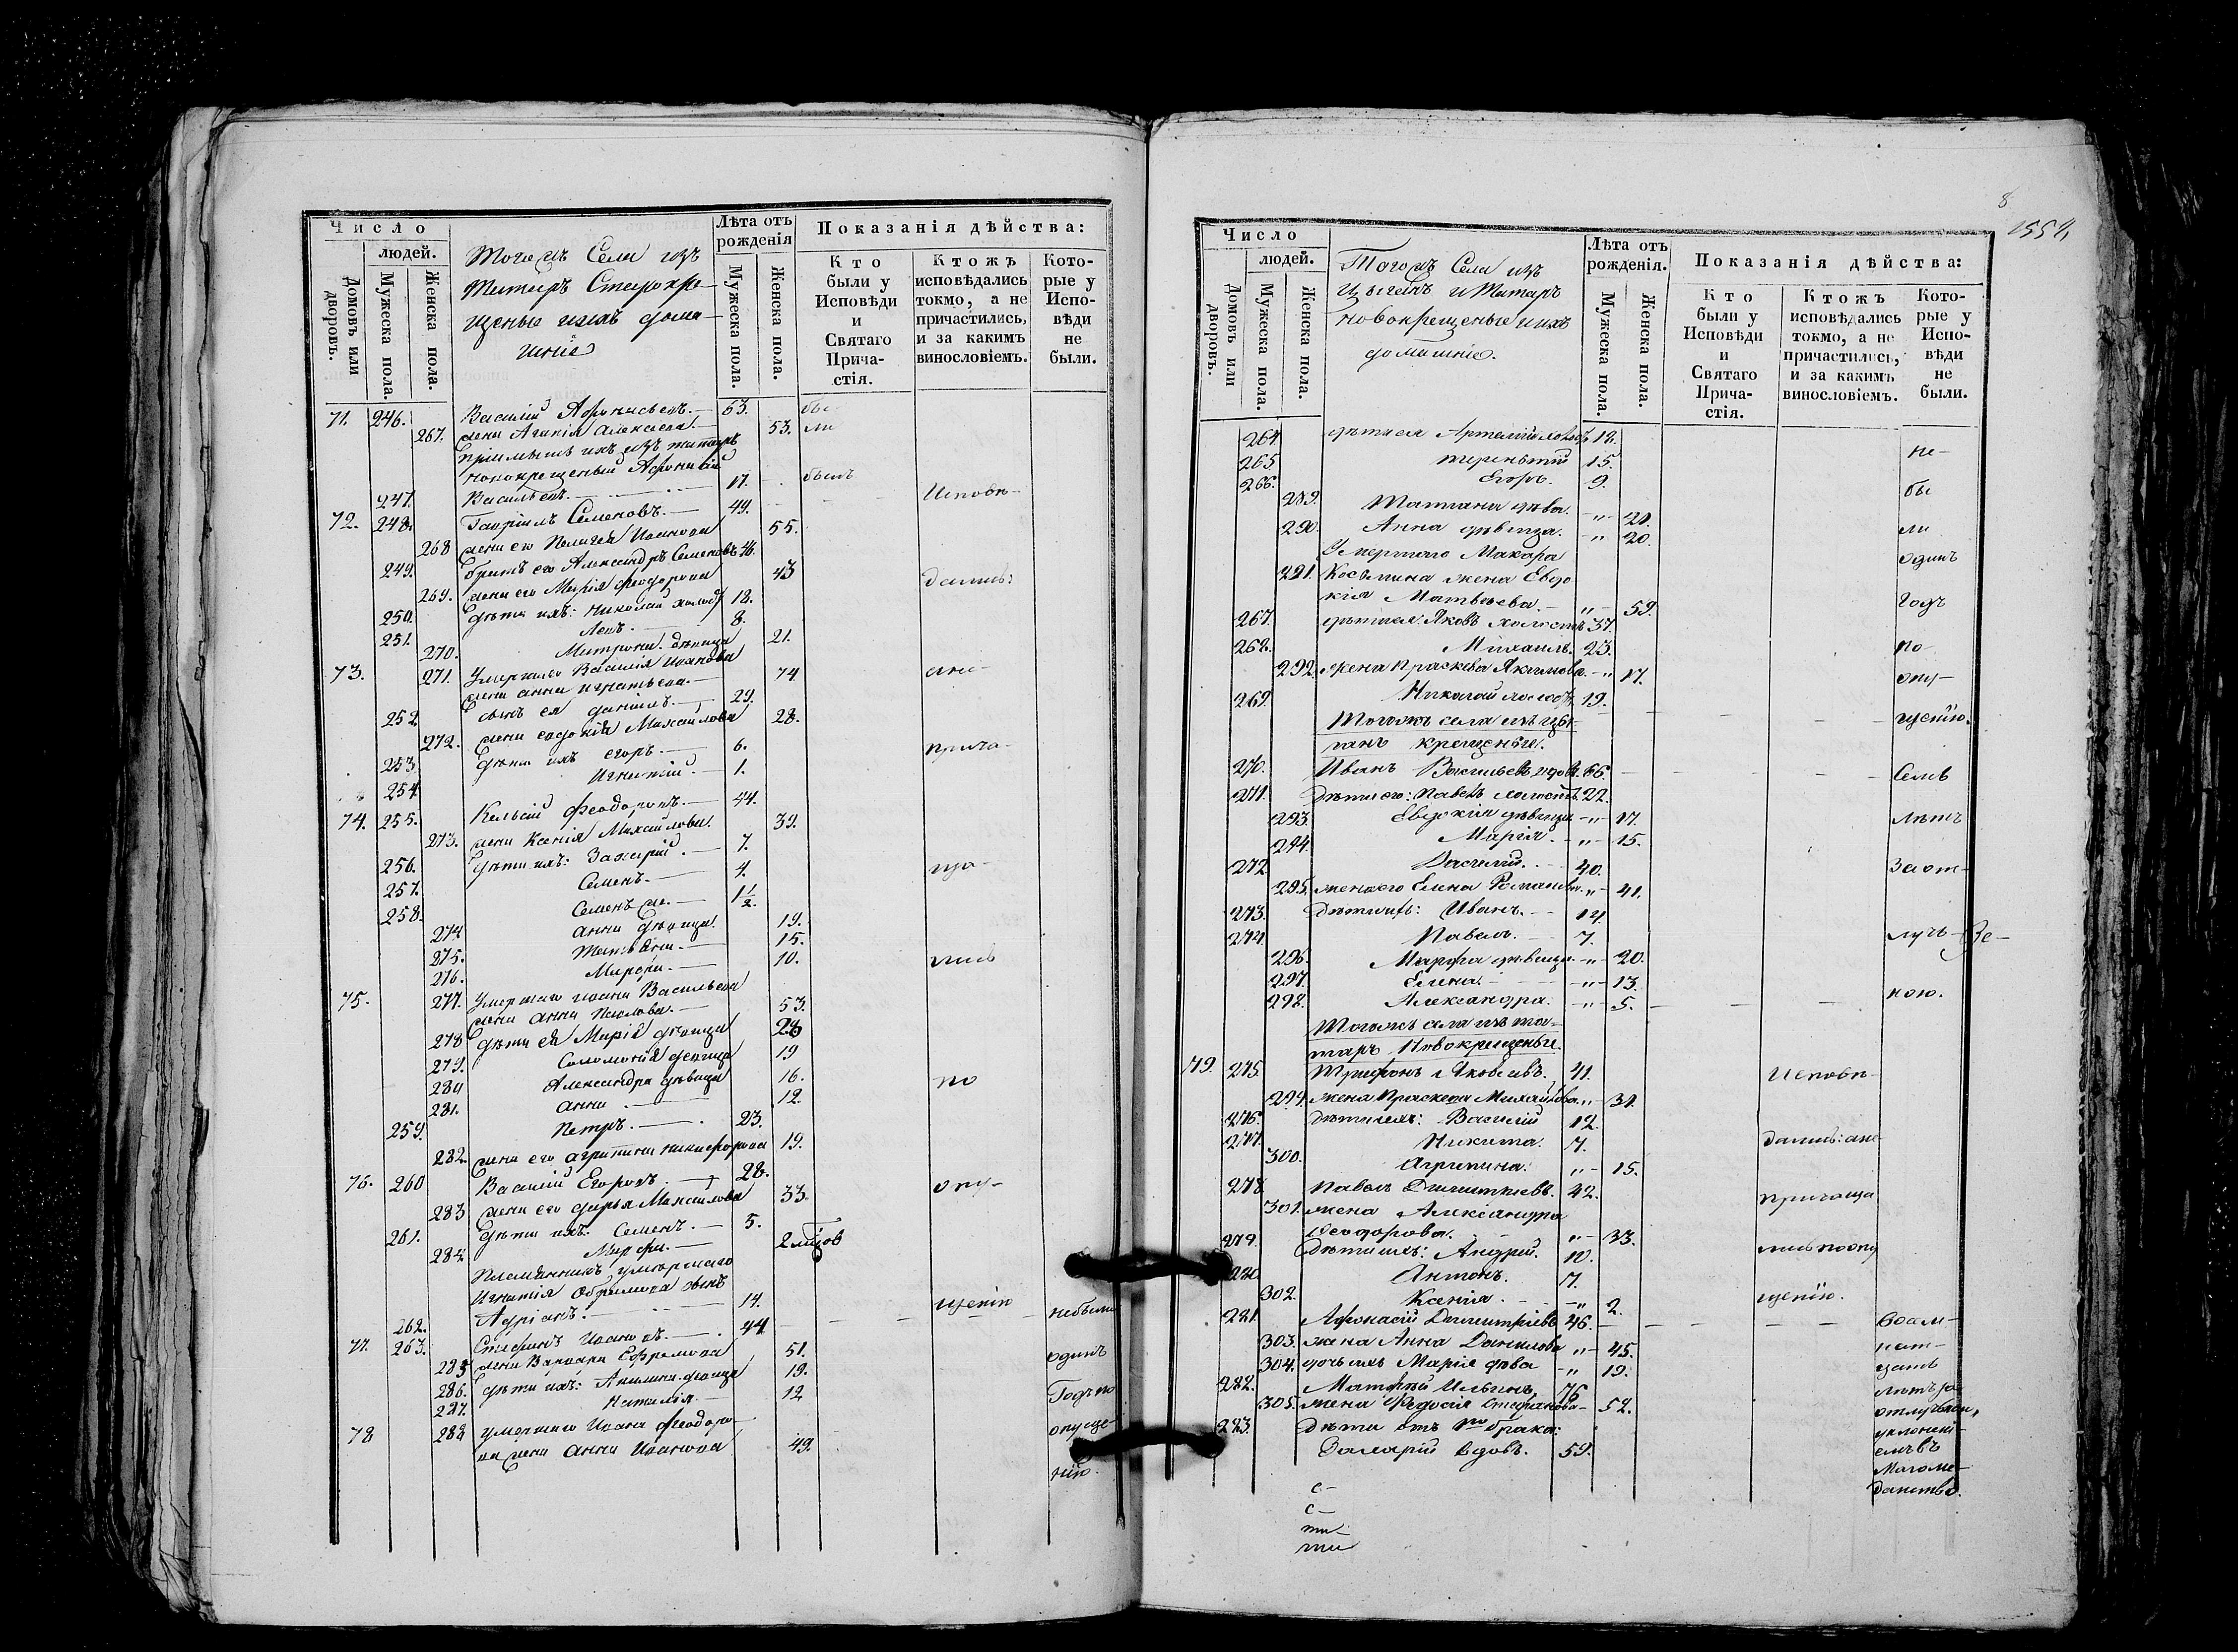 Число
людей.
Домовъ или дворовъ.
Мужеска пола.
Женска пола.
Тогожъ Села изъ
Татаръ Старокре-
щеные ихъ дома-
шніе
Лѣта отъ рожденія
Мужеска пола.
Женска пола.
Показанія дѣйства:
Кто были у Исповѣди и Святаго Прича-стія.
Ктожъ исповѣдались токмо, а не причастились, и за какимъ винословіемъ.
Кото-рые у Испо-вѣди не были.
71. 246. Василій Афонасьевъ. 63. бы
267. жена Агапія Алексеева. 53. ли
новокрещеный
247. Васильевъ. 17. былъ
72. 248. Гавріилъ Семеновъ. 49. Исповѣ-
268 жена его Пелагея Иванова 55.
249. братъ его Александръ Семеновъ 46.
269. жена его Марія Феодорова 43 дались:
250. дѣти ихъ: Николай холост 18.
251. Левъ. 8.
270. Матрона девица 21.
73. 271. Умершаго Василія Иванова
жена Анна Игнатьева. 74 ане-
252 сынъ ея Даніилъ. 29.
272. жена Михаилова 28.
253 дѣти ихъ Егоръ. 6. прича-
254 Игнатій. 1.
74. 255. Феодоровъ. 44.
273. жена Ксенія Михаилова. 39.
256. дѣти ихъ: Захарій. 7.
257. Семенъ. 4. ща-
258. Семенъ же. 1½.
274 Анна дѣвица. 19.
275. Татьяна. 15.
276. Марфа. 10. лись
75. 277. Умершаго Ивана Васильева
жена Анна Павлова. 53.
278 дѣти ея Марія девица 28
279. Соломонія девица 19
280 Александра дѣвица 16. по
281. Анна 12.
259. Петръ. 23.
282. жена его Агрипина Никифорова 19.
76. 260 Василій Егоровъ. 28.
283 жена его Дарья Михаилова 33. опу-
261. дѣти ихъ: Семенъ. 5.
284. Марфа. 2
Племянникъ умершаго
Игнатія сынъ
262. Адріанъ. 14. щенію небыли
77. 263. Стефанъ Ивановъ. 44.
285 жена Варвара Ефремова 51. одинъ
286. дѣти ихъ: Акилина девица 19.
287. Наталія. 12 Годъ по
78 288 умершаго Ивана Феодоро- опуще-
ва жена Анна Иванова 49. нію.
8
1554
Число
людей.
Домовъ или дворовъ.
Мужеска пола.
Женска пола.
Тогожъ Села изъ
Цыганъ и Татаръ
новокрещеные и ихъ
домашніе.
Лѣта отъ рожденія.
Мужеска пола.
Женска пола.
Показанія дѣйства:
Кто были у Исповѣди и Святаго Прича-стія.
Ктожъ исповѣдались токмо, а не причастились, и за какимъ винословіемъ.
Кото-рые у Испо-вѣди не были.
264. дѣти ея Артемій 18.
265 Терентій 15. не-
266. Егоръ. 9.
289. Татіана дѣва. 21. бы
290. Анна дѣвица. 20. ли
Умершаго Макара
291. Косьмина жена Евдо одинъ
кія Матвѣева. 59. годъ
267. дѣти ея: Яковъ холостъ 37.
268. Михаилъ. 23. по
292. жена Праскева Акимова. 17. опу-
269. Николай холостъ 19.
Тогожъ села изъ цы- щенію.
ганъ крещеные.
270. Иванъ Васильевъ вдовъ. 66. Семь
271. Дѣти его: Павелъ холостъ 22.
293. Евдокія дѣвица 17. лѣтъ
294. Марія. 15.
272. Василій. 40. за от-
295. жена его Елена Романова 41.
273. Дѣти ихъ: Иванъ. 14.
274. Павелъ. 7. луч-
296. Марфа дѣвица 20.
297. Елена. 13.
298. Александра. 5. кою.
Тогожъ села изъ та-
таръ Новокрещеные.
79. 275. Трифонъ Яковлевъ. 41. Исповѣ-
299. жена Праскева Михайлова 31.
276. Дѣти ихъ: Василій 12.
277. Никита. 7. дались: ане
300. Агрипина. 15.
278. Павелъ Димитріевъ. 42. причаща
301. жена Александра
Феодорова. 33.
279. Дѣти ихъ: Андрей. 10. лись по опу
280 Антонъ. 7.
302. Ксенія. 2. щенію.
281. Афонасій Димитріевъ 46.
303. жена Анна Данилова 45.
304. дочь ихъ Марія дѣва 19.
282. Матфей Ильинъ 76 лѣтъ за
305. жена Федосія Стефанова 52.
283. Дѣти отъ 1го брака:
Захарій вдовъ. 59.
Магоме-
данство.
с-
с-
ти-
ти